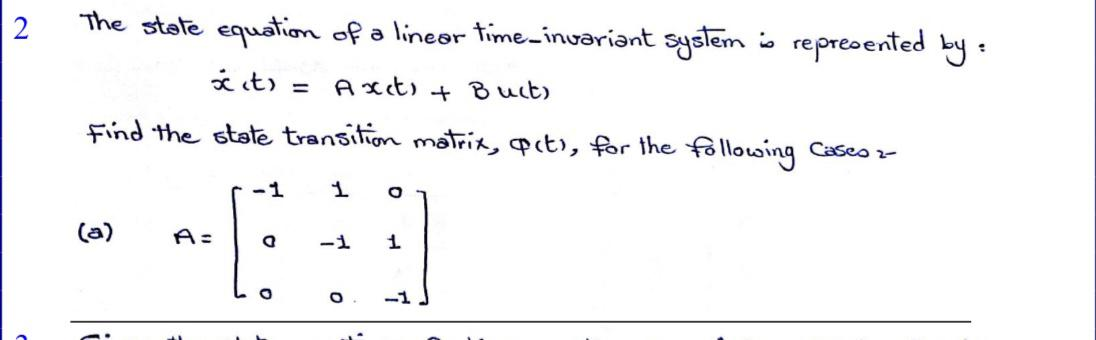 2 The state equation of a linear time-invariant system is represented by :
ẋ(t) = A x(t) + B u(t)
Find the state transition matrix, φ(t), for the following Cases :-
-1 1 0
(a) A = 0 -1 1
0 0 -1